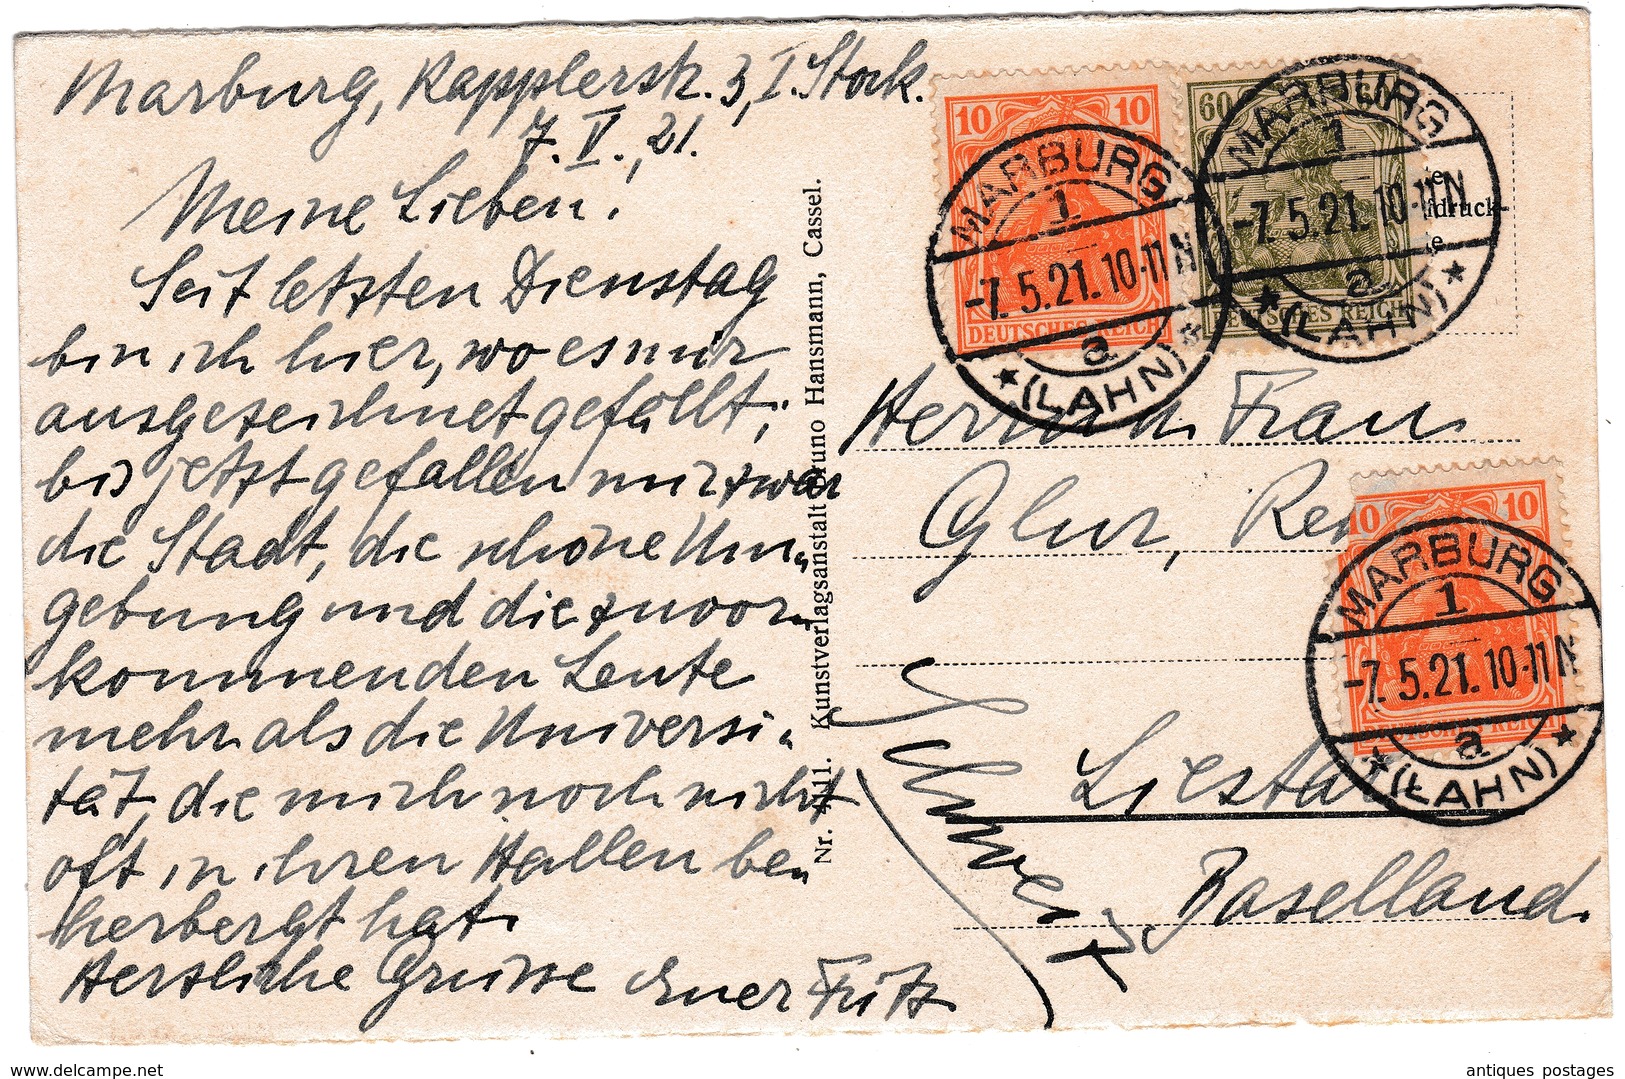 Marburg, Kapplerstr. 3, I. Stock.
7. V. 21.
Meine Lieben!
Seit letzten Dienstag
bin ich hier, wo es mir
ausgezeichnet gefällt;
bis jetzt gefallen mir zwar
die Stadt, die schöne Um-
gebung und die zuvor-
kommenden Leute
mehr als die Universi-
tät, die mich noch nicht
oft in ihren Hallen be-
herbergt hat.
Herzliche Grüsse Euer Fritz
Nr. 4111. Kunstverlagsanstalt Bruno Hansmann, Cassel.
10 10
DEUTSCHES REICH
MARBURG
1
-7.5.21.10-11N
a
*(LAHN)*
60 60
DEUTSCHES REICH
MARBURG
1
-7.5.21.10-11N
a
*(LAHN)*
druck-
Herrn u. Frau
Glur,
10 10
DEUTSCHES REICH
MARBURG
1
-7.5.21.10-11N
a
*(LAHN)*
Liestal
Baselland.
Schweiz
delcampe.net
antiques postages